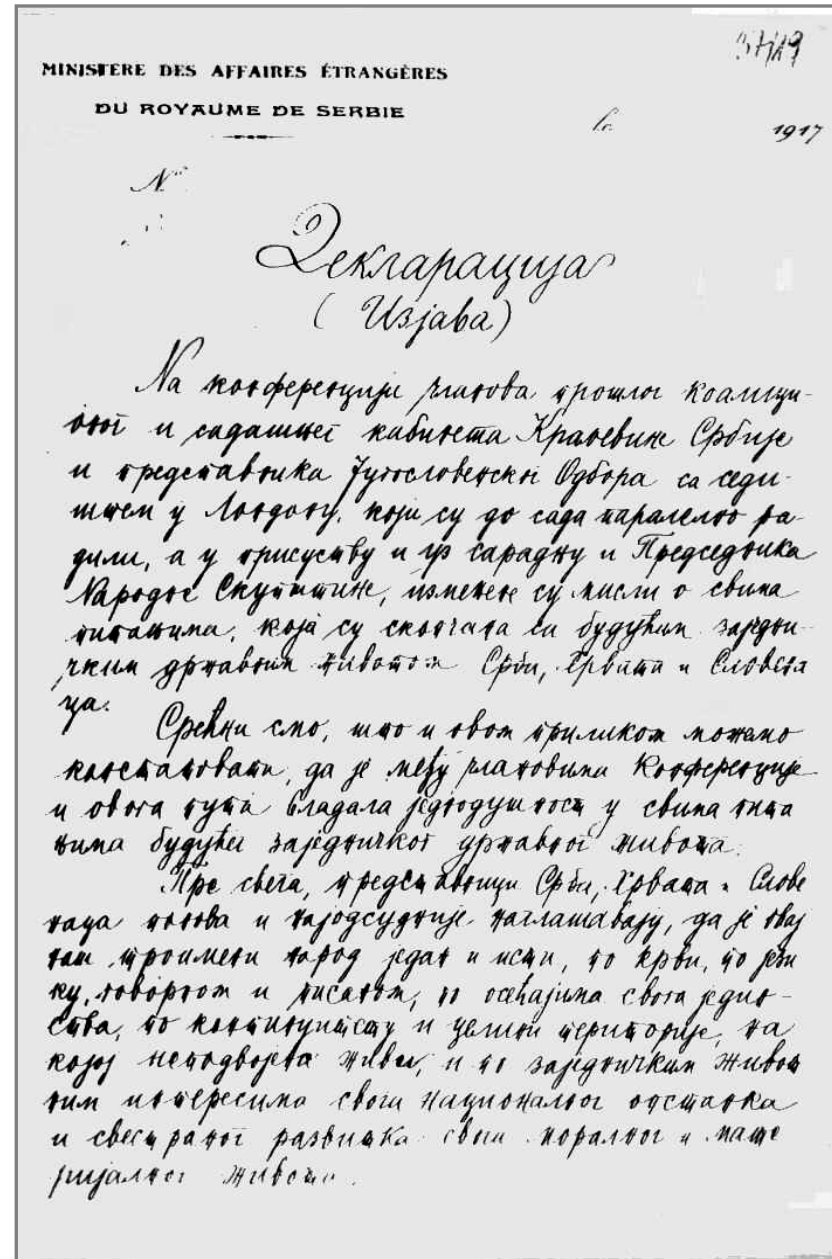 MINISTERE DES AFFAIRES ÉTRANGÈRES
DU ROYAUME DE SERBIE
1917
№
Декларација
(Изјава)
На конференцији чланова прошлог коалици-
оног и садашњег кабинета Краљевине Србије
и представника Југословенског Одбора са седи-
штем у Лондону, који су до сада паралелно ра-
дили, а у присуству и уз сарадњу и Председника
Народне Скупштине, измењене су мисли о свима
питањима, која су скопчана са будућим заједни-
чким државним животом Срба, Хрвата и Словена
ца.
Срећни смо, што и овом приликом можемо
констатовати, да је међу члановима Конференције
и овога пута владала једнодушност у свима пита
њима будућег заједничког државног живота.
Пре свега, представници Срба, Хрвата и Слове
наца понова и најодсудније наглашавају, да је овај
наш троимени народ један и исти, по крви, по јези
ку, говорном и писаном, по осећајима свога једин-
ства, по континуитету и целини територије, на
којој неподвојено живи, и по заједничким живот
ним интересима свога националног опстанка
и свестраног развитка свога моралног и мате
ријалног живота.